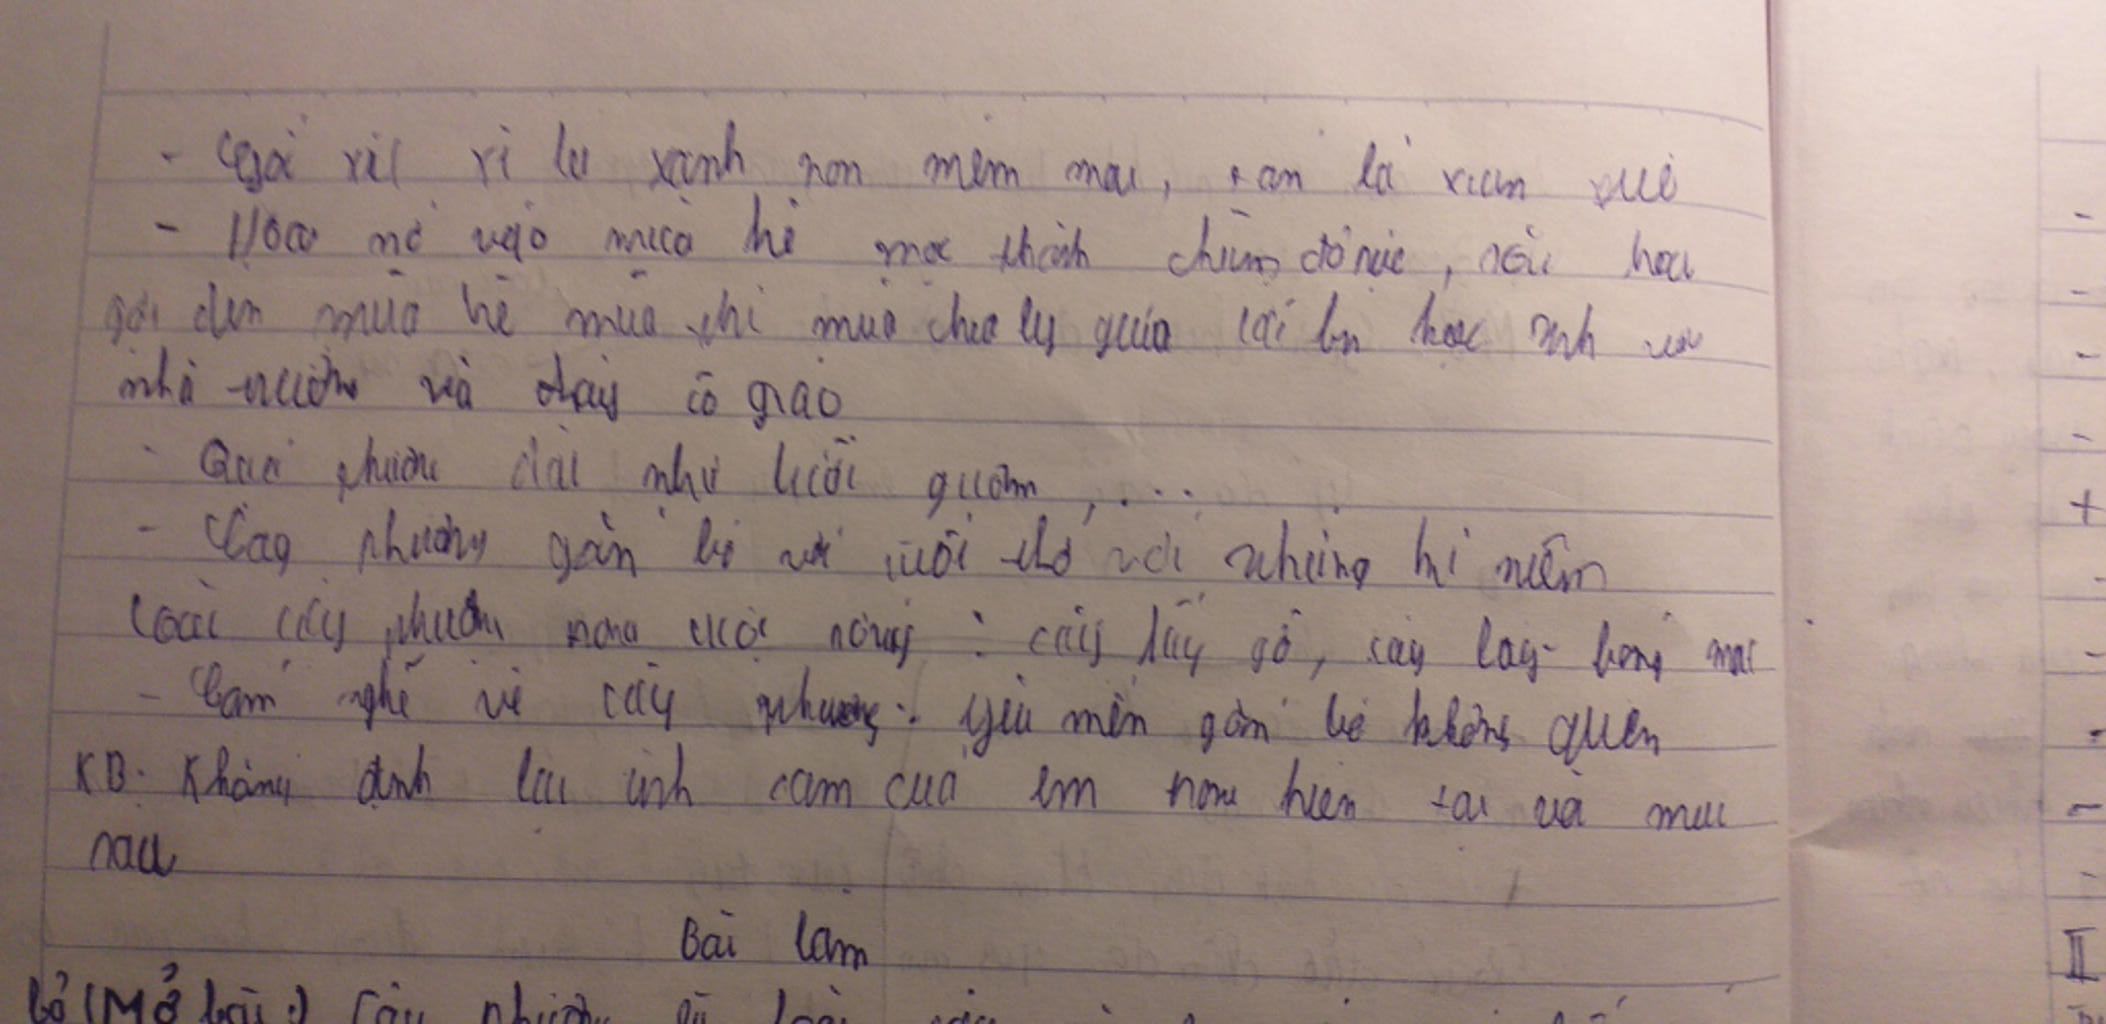 - xanh non mềm mại, tán lá xum xuê
- Hoa nở vào mùa hè mọc thành chùm đỏ rực, hoa
gọi đến mùa hè mùa thi mùa chia ly giữa học sinh với
nhà trường và thầy cô giáo
- Quả phượng dài như lưỡi gươm, ...
- Cây phượng gắn bó với tuổi thơ với những kỉ niệm
Loài cây phượng trong cuộc sống : cây lấy gỗ, cây lấy bóng mát
- Cảm nghĩ về cây phượng: yêu mến gắn bó không quên
KB: Khẳng định lại tình cảm của em trong hiện tại và mai
sau
Bài làm
(Mở bài:) Cây phượng là loài
II